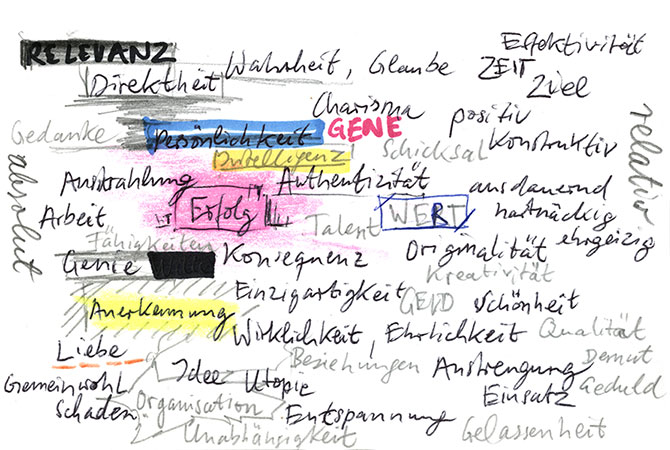 RELEVANZ Wahrheit, Glaube ZEIT Effektivität
Direktheit Ziel
Charisma positiv
Gedanke Persönlichkeit GENE Konstruktiv relativ
absolut Intelligenz Schicksal
Ausstrahlung Authentizität ausdauernd
Arbeit Erfolg Talent WERT hartnäckig
Fähigkeiten Originalität ehrgeizig
Genie Konsequenz Kreativität
Einzigartigkeit GELD Schönheit
Anerkennung Wirklichkeit, Ehrlichkeit Qualität
Liebe Idee Beziehungen Anstrengung Demut
Gemeinwohl Utopie Einsatz Geduld
Schaden Organisation Entspannung
Unabhängigkeit Gelassenheit